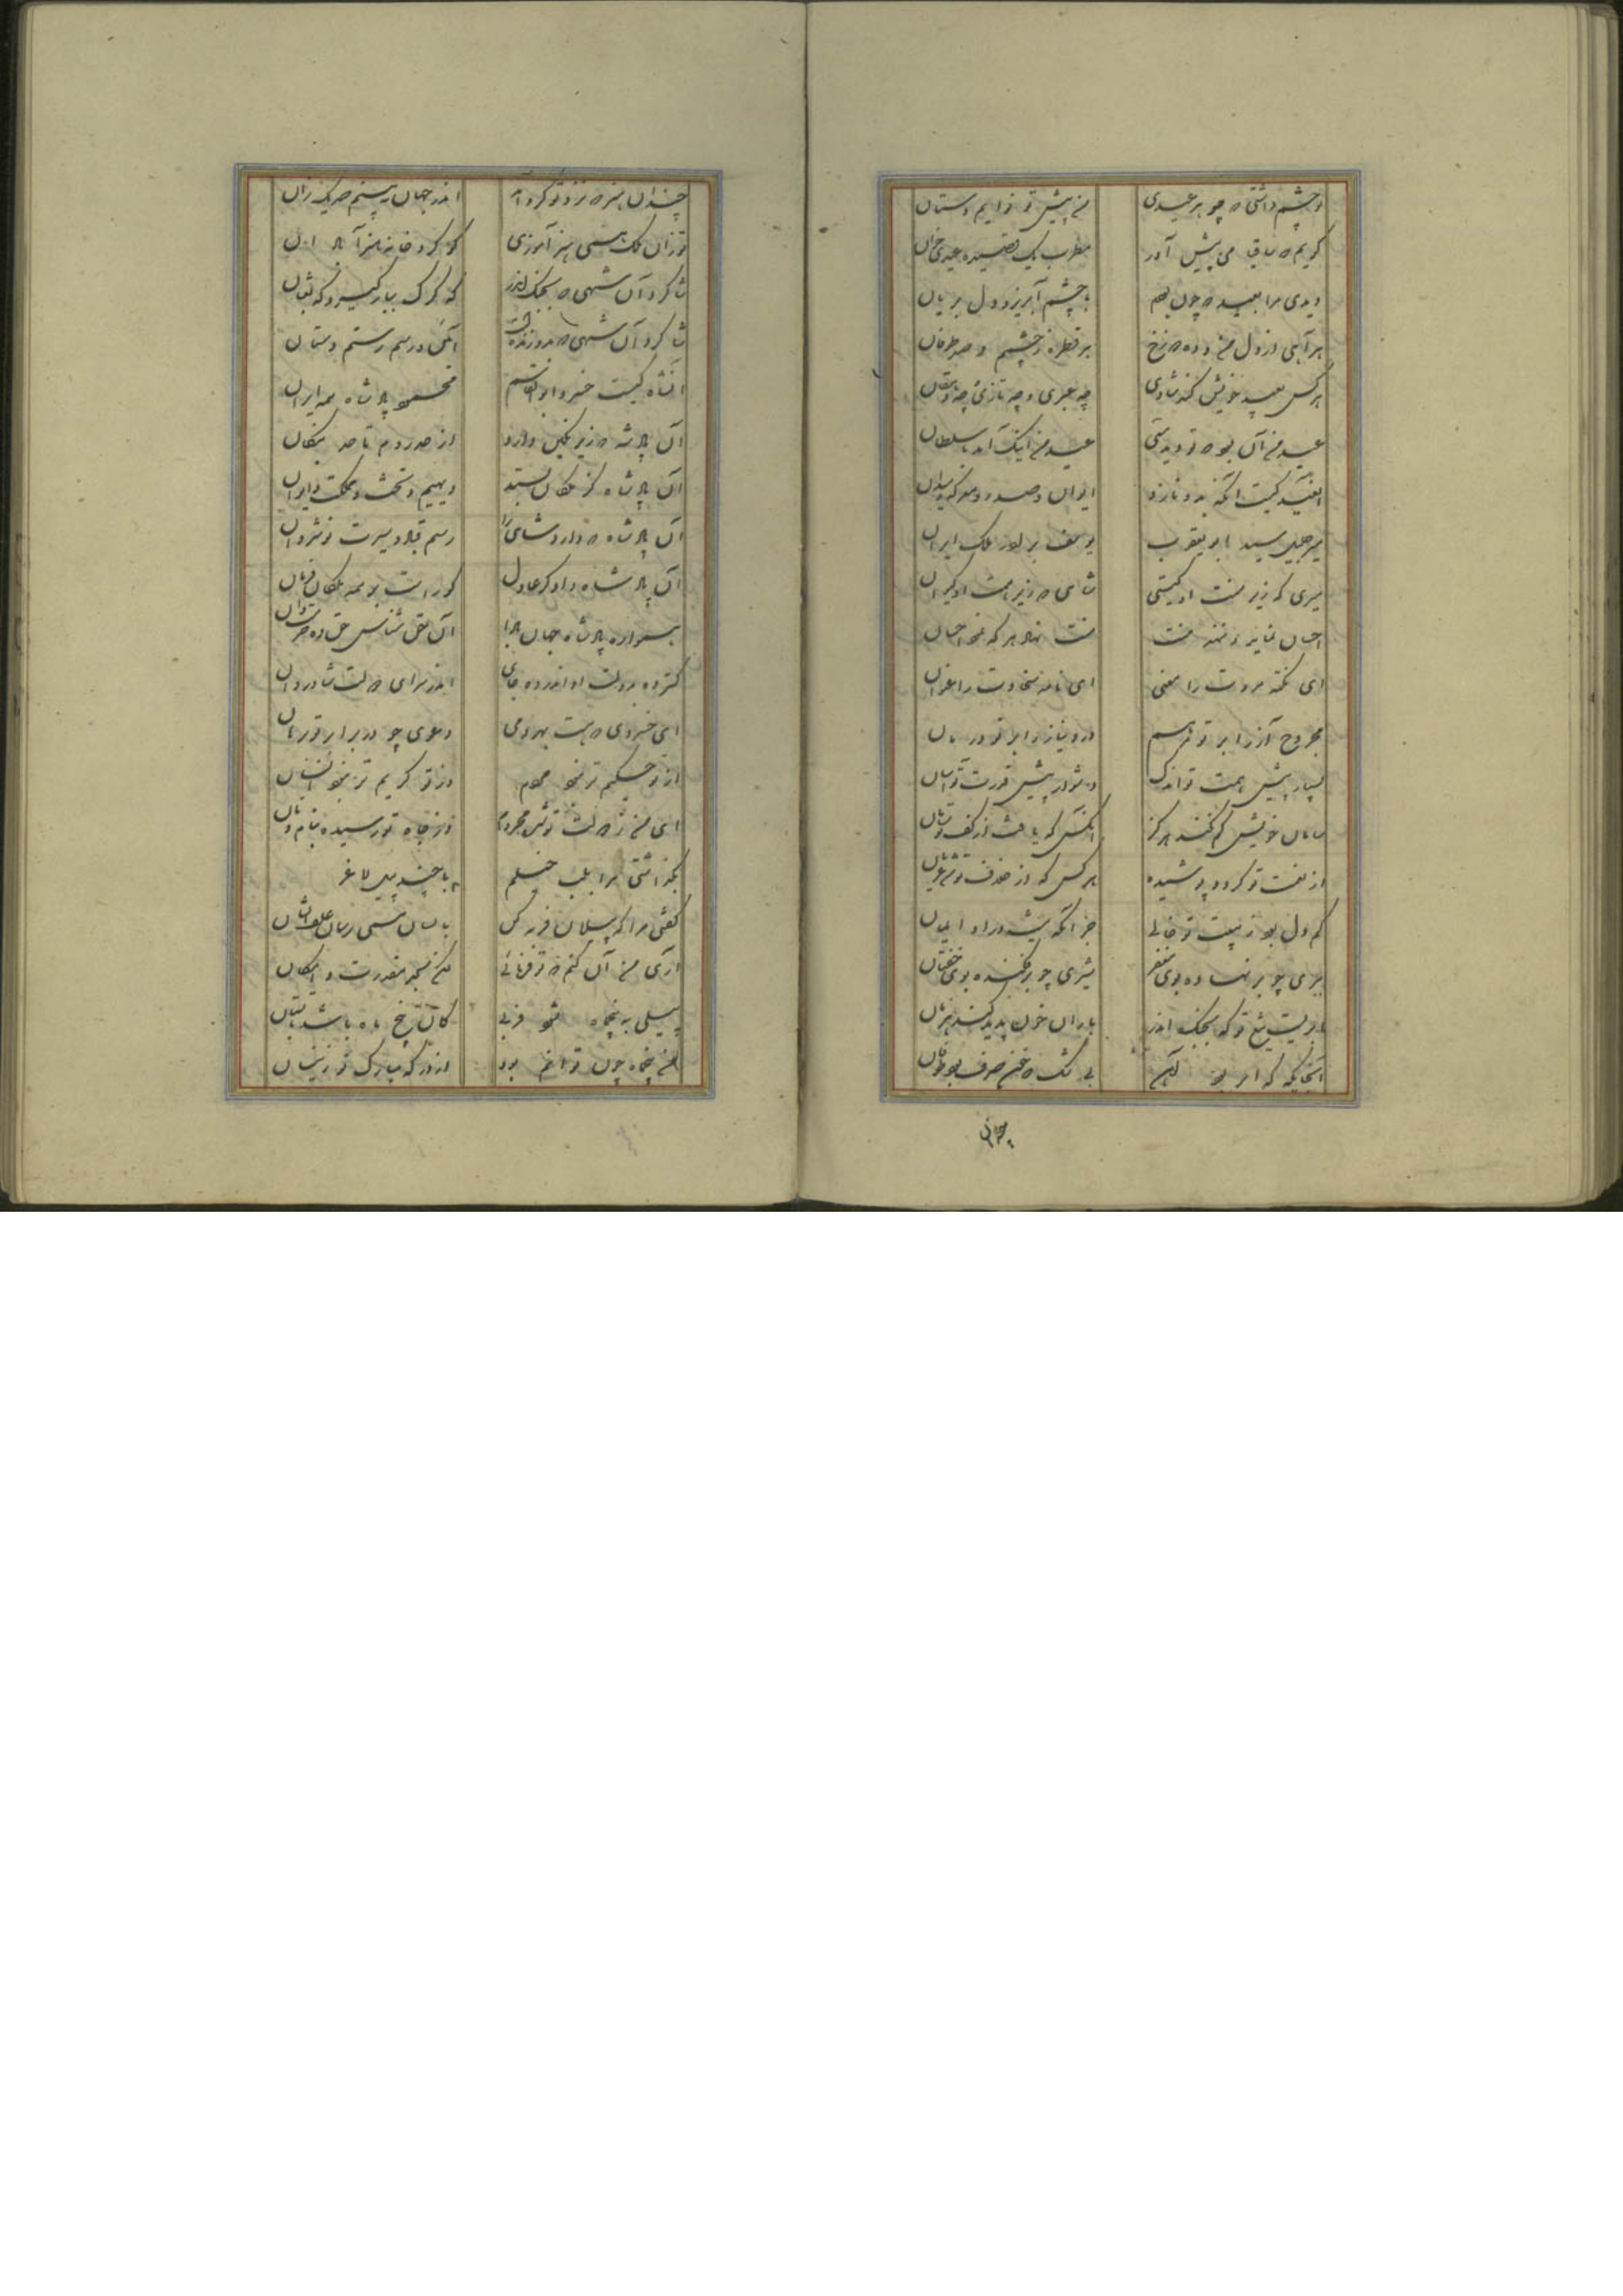 و چشم داشتی که چو هر عیدی من پیش تو نوایم دستان
گویم که ساقیا می پیش آور مطرب یکی قصیده عیدی خوان
دیدی مرا بعید که چون بودم با چشم آبریز و دل بریان
هر آهی از دل من و ده دوزخ هر قطره ز چشم و صد طوفان
هر کس بعید خویش کند شادی چه عبری و چه تازی و چه دهقان
عید من آن بود که تو دیدستی عید من اینک آمد با سلطان
آن عید کیست آنکه بدو نازد ایوان و صدر و معرکه و میدان
میر جلیل سید ابو یعقوب یوسف برادر ملک ایران
میری که زیر منت او گیتی شاهی که زیر همت او کیوان
احسان نماید و ننهد منت منت نهد هر که کند احسان
ای نکته مروت را معنی ای نامه سخاوت را عنوان
مجروح آز را بر تو مرهم درد نیاز را بر تو درمان
بسیار پیش همت تو اندک دشوار پیش قدرت تو آسان
سامان خویش گم نکند هرگز آنکس که یافت از کف تو سامان
از نعمت تو گردد پوشیده هر کس که از خلاف تو شد عریان
کم دل بود ز تو خالی جز آنکه نیست در او ایمان
ببری چو بر نهاده بوی مغفر شیری چو برفکنده بوی خفتان
ابریست تیغ تو که بجنگ اندر باران خون پدید کند هزمان
آنجایگه که ابر بود آهن بی شک که خون صرف بود باران
چندان هنر که نزد تو گرد آمد اندر جهان نبینم صد یک زان
تو زان ملک همی هنر آموزی کو کرد خانه هنر آبادان
شاگرد آن شهی که بجنگ اندر گه کرگ بار گیرد و گه ثعبان
شاگرد آن شهی که بدو زنده است آئین و رسم رستم دستان
آنشاه کیست خسرو ابوالقاسم محمود پادشاه همه ایران
آن پادشه که زیر نگین دارد از حد روم تا حد
آن پادشاه کز ملکان بستد دیهیم و تخت و مملکت و ایوان
آن پادشاه که دارد شاهی را رسم قباد و سیرت نوشروان
آن پادشاه دادگر عادل کو راست بر همه ملکان فرمان
همواره پادشاه جهان بادا آن حق شناس حق ده
گسترده بدولت او اندر ده جای اندر سرای دولت شادروان
ای خسروی که هست بهر دعوی چو بر تو برهان
از تو حکیم تر نبود مردم وز تو کریم تر نبود انسان
ای من ز دولت تو شده مردم وز جاه تو رسیده بنام و نان
بگذاشتی مرا بلب جیلم با چند پیل لاغر
گفتی مرا که پیلان فربه کن با ایشان همی رسان علف ایشان
آری من آن کنم که تو فرمائی لیکن بحد مقدرت و امکان
پیلی به پنج ماه شود فربه کان پنج ماه باشد تابستان
من پنج مه چون توانم بود از درگه مبارک تو زینسان